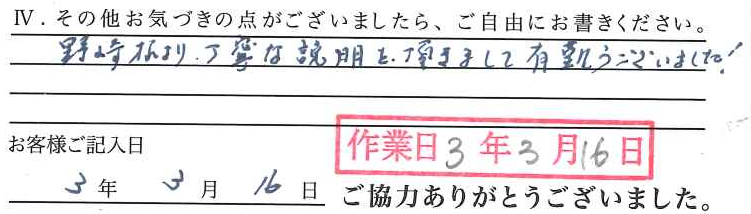 Ⅳ．その他お気づきの点がございましたら、ご自由にお書きください。
野崎様より、丁寧な説明を頂きまして有難うございました！
お客様ご記入日
作業日3年3月16日
3年3月16日
ご協力ありがとうございました。